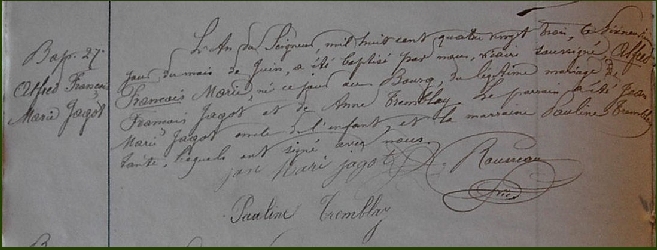 Bap. 27.
Alfred Francois
Marie Jagot
L'An du Seigneur, mil huit cent quatre vingt trois, le
jour du mois de Juin, a été baptisé par nous, vicaire soussigné, Alfred
Francois Marie, né ce jour au Bourg, du légitime mariage de
Francois Jagot et de Anne Tremblay. Le parrain a été Jean
Marie Jagot oncle de l'enfant et la marraine Pauline Tremblay
tante, lesquels ont signé avec nous.
jan Mari jagot Rousseau
Pauline Tremblay